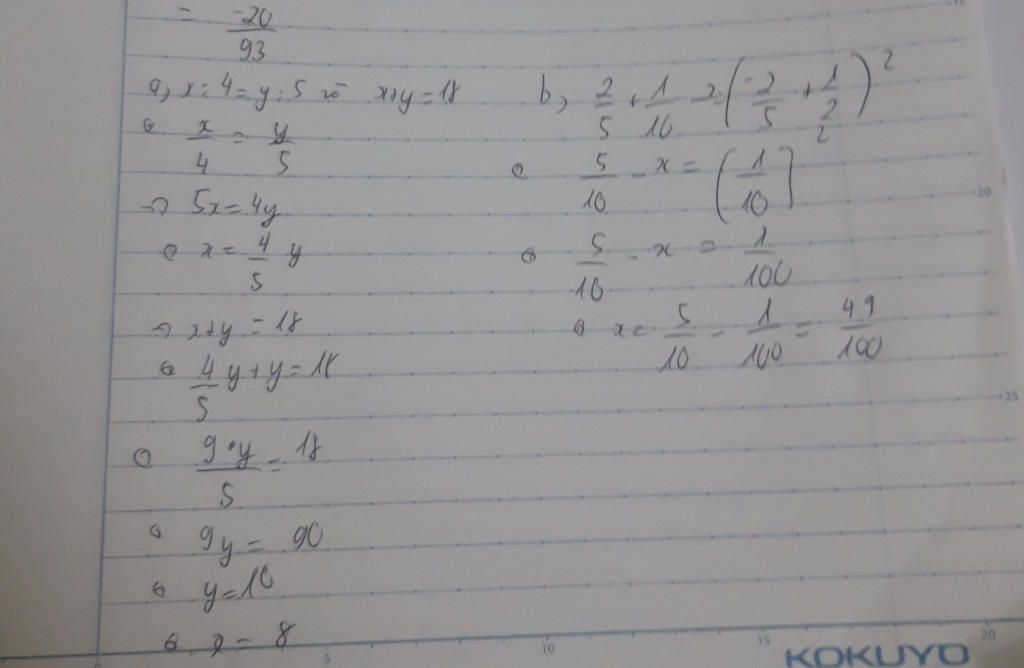 = -20/93
a, x : 4 = y : 5 và x+y = 18
x/4 = y/5
=> 5x = 4y
x = 4/5 y
=> x+y = 18
4/5 y + y = 18
9.y/5 = 18
9y = 90
y = 10
x = 8
b, 2/5 + 1/10 - x = (-2/5 + 1/2)²
5/10 - x = (1/10)²
5/10 - x = 1/100
x = 5/10 - 1/100 = 49/100
15
20
25
5
10
15
20
KOKUYO